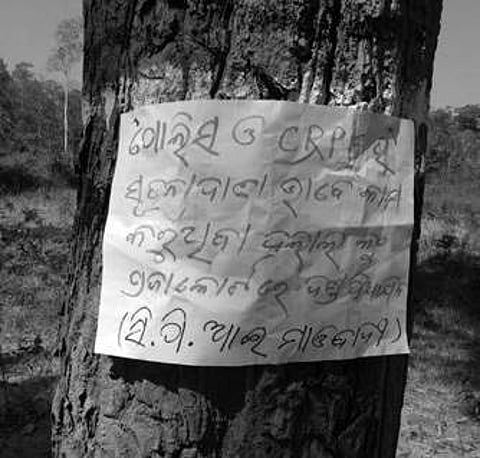 ପୋଲିସ ଓ CRPFର
ସୂଚନାଦାତା ଭାବେ କାମ
କରୁଥିବା ଦଲାଲ କୁ
ପ୍ରଜାକୋର୍ଟରେ ଦଣ୍ଡ
(ସି.ପି.ଆଇ ମାଓବାଦୀ)